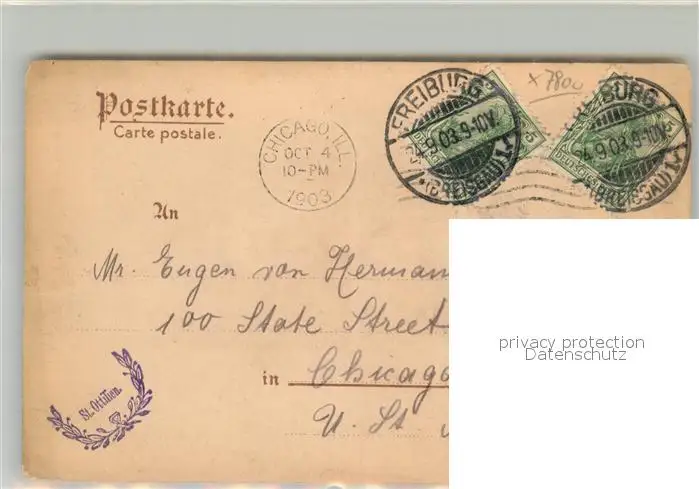 Postkarte.
Carte postale.
CHICAGO, ILL.
OCT 4
10-PM
1903
FREIBURG
24.9.03.9-10V.
*(BREISGAU)1.*
x7800
An
Mr. Eugen von Herman
100 State Street
in Chicago
U. St
St. Ottilien.
privacy protection
Datenschutz